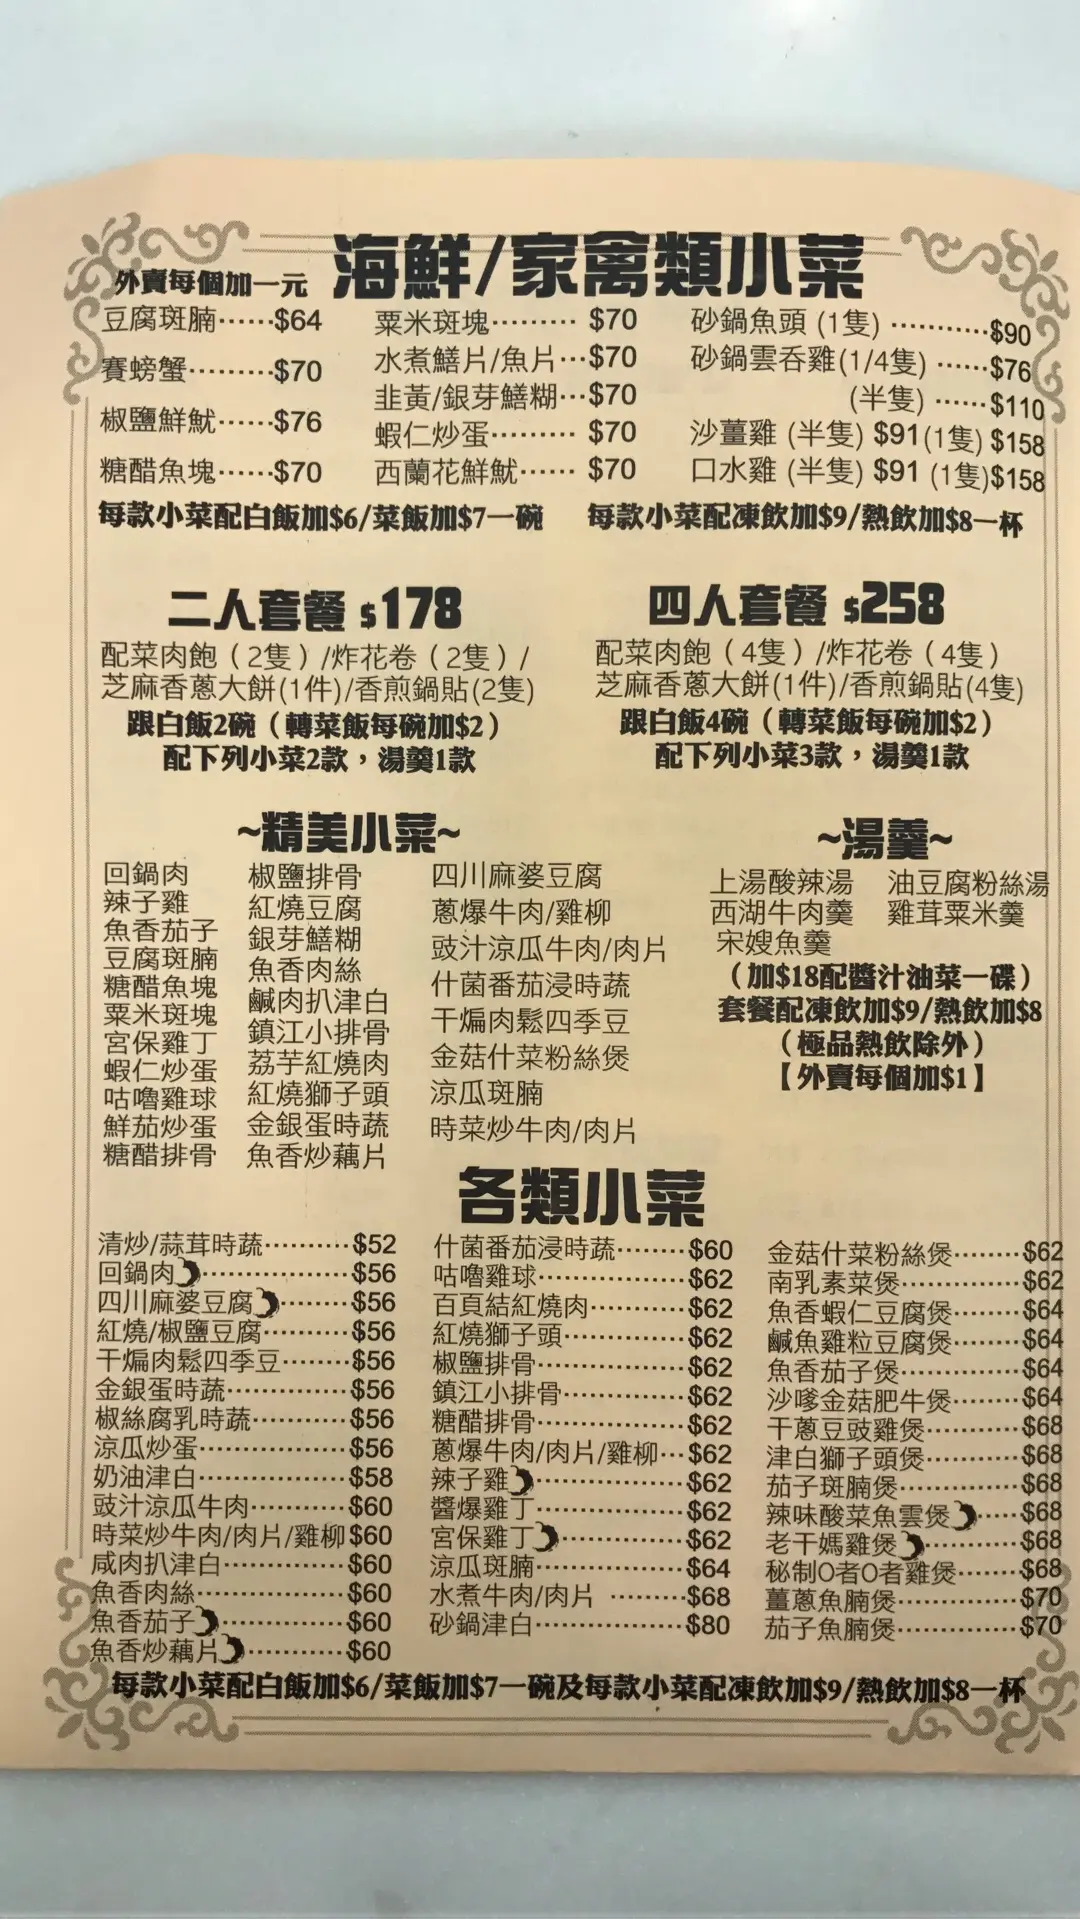 海鮮/家禽類小菜
外賣每個加一元
豆腐斑腩……$64
賽螃蟹………$70
椒鹽鮮魷……$76
糖醋魚塊……$70
粟米斑塊……… $70
水煮鱔片/魚片…$70
韭黃/銀芽鱔糊…$70
蝦仁炒蛋……… $70
西蘭花鮮魷…… $70
砂鍋魚頭 (1隻) …………$90
砂鍋雲吞雞(1/4隻) ……$76
(半隻) ……$110
沙薑雞 (半隻) $91(1隻) $158
口水雞 (半隻) $91 (1隻)$158
每款小菜配白飯加$6/菜飯加$7一碗
每款小菜配凍飲加$9/熱飲加$8一杯
二人套餐 $178
配菜肉飽（2隻）/炸花卷（2隻）/
芝麻香蔥大餅(1件)/香煎鍋貼(2隻)
跟白飯2碗（轉菜飯每碗加$2）
配下列小菜2款，湯羹1款
四人套餐 $258
配菜肉飽（4隻）/炸花卷（4隻）
芝麻香蔥大餅(1件)/香煎鍋貼(4隻)
跟白飯4碗（轉菜飯每碗加$2）
配下列小菜3款，湯羹1款
~精美小菜~
回鍋肉
辣子雞
魚香茄子
豆腐斑腩
糖醋魚塊
粟米斑塊
宮保雞丁
蝦仁炒蛋
咕嚕雞球
鮮茄炒蛋
糖醋排骨
椒鹽排骨
紅燒豆腐
銀芽鱔糊
魚香肉絲
鹹肉扒津白
鎮江小排骨
荔芋紅燒肉
紅燒獅子頭
金銀蛋時蔬
魚香炒藕片
四川麻婆豆腐
蔥爆牛肉/雞柳
豉汁涼瓜牛肉/肉片
什菌番茄浸時蔬
干煸肉鬆四季豆
金菇什菜粉絲煲
涼瓜斑腩
時菜炒牛肉/肉片
~湯羹~
上湯酸辣湯 油豆腐粉絲湯
西湖牛肉羹 雞茸粟米羹
宋嫂魚羹
（加$18配醬汁油菜一碟）
套餐配凍飲加$9/熱飲加$8
（極品熱飲除外）
【外賣每個加$1】
各類小菜
清炒/蒜茸時蔬………$52
回鍋肉………………$56
四川麻婆豆腐………$56
紅燒/椒鹽豆腐………$56
干煸肉鬆四季豆……$56
金銀蛋時蔬…………$56
椒絲腐乳時蔬………$56
涼瓜炒蛋……………$56
奶油津白……………$58
豉汁涼瓜牛肉………$60
時菜炒牛肉/肉片/雞柳$60
咸肉扒津白…………$60
魚香肉絲……………$60
魚香茄子……………$60
魚香炒藕片…………$60
什菌番茄浸時蔬……$60
咕嚕雞球……………$62
百頁結紅燒肉………$62
紅燒獅子頭…………$62
椒鹽排骨……………$62
鎮江小排骨…………$62
糖醋排骨……………$62
蔥爆牛肉/肉片/雞柳…$62
辣子雞………………$62
醬爆雞丁……………$62
宮保雞丁……………$62
涼瓜斑腩……………$64
水煮牛肉/肉片 ………$68
砂鍋津白……………$80
金菇什菜粉絲煲……$62
南乳素菜煲…………$62
魚香蝦仁豆腐煲……$64
鹹魚雞粒豆腐煲……$64
魚香茄子煲…………$64
沙嗲金菇肥牛煲……$64
干蔥豆豉雞煲………$68
津白獅子頭煲………$68
茄子斑腩煲…………$68
辣味酸菜魚雲煲……$68
老干媽雞煲…………$68
秘制O者O者雞煲……$68
薑蔥魚腩煲…………$70
茄子魚腩煲…………$70
每款小菜配白飯加$6/菜飯加$7一碗及每款小菜配凍飲加$9/熱飲加$8一杯